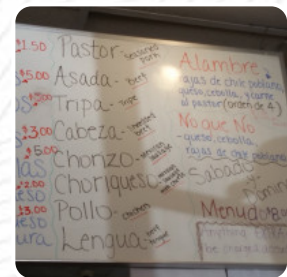 $1.50 Pastor- seasoned pork
$5.00 Asada- beef
$5.00 Tripa- tripe
$3.00 Cabeza-
$5.00 Chorizo- mexican sausage
$2.00 Choriqueso-
$3.00 Pollo- chicken
Lengua- beef tongue
Alambre
rajas de chile poblano,
queso, cebolla, y carne
al pastor (orden de 4)
No que No
-queso, cebolla,
rajas de chile poblano
Sabado
Menudo
Anything EXTRA
be charged